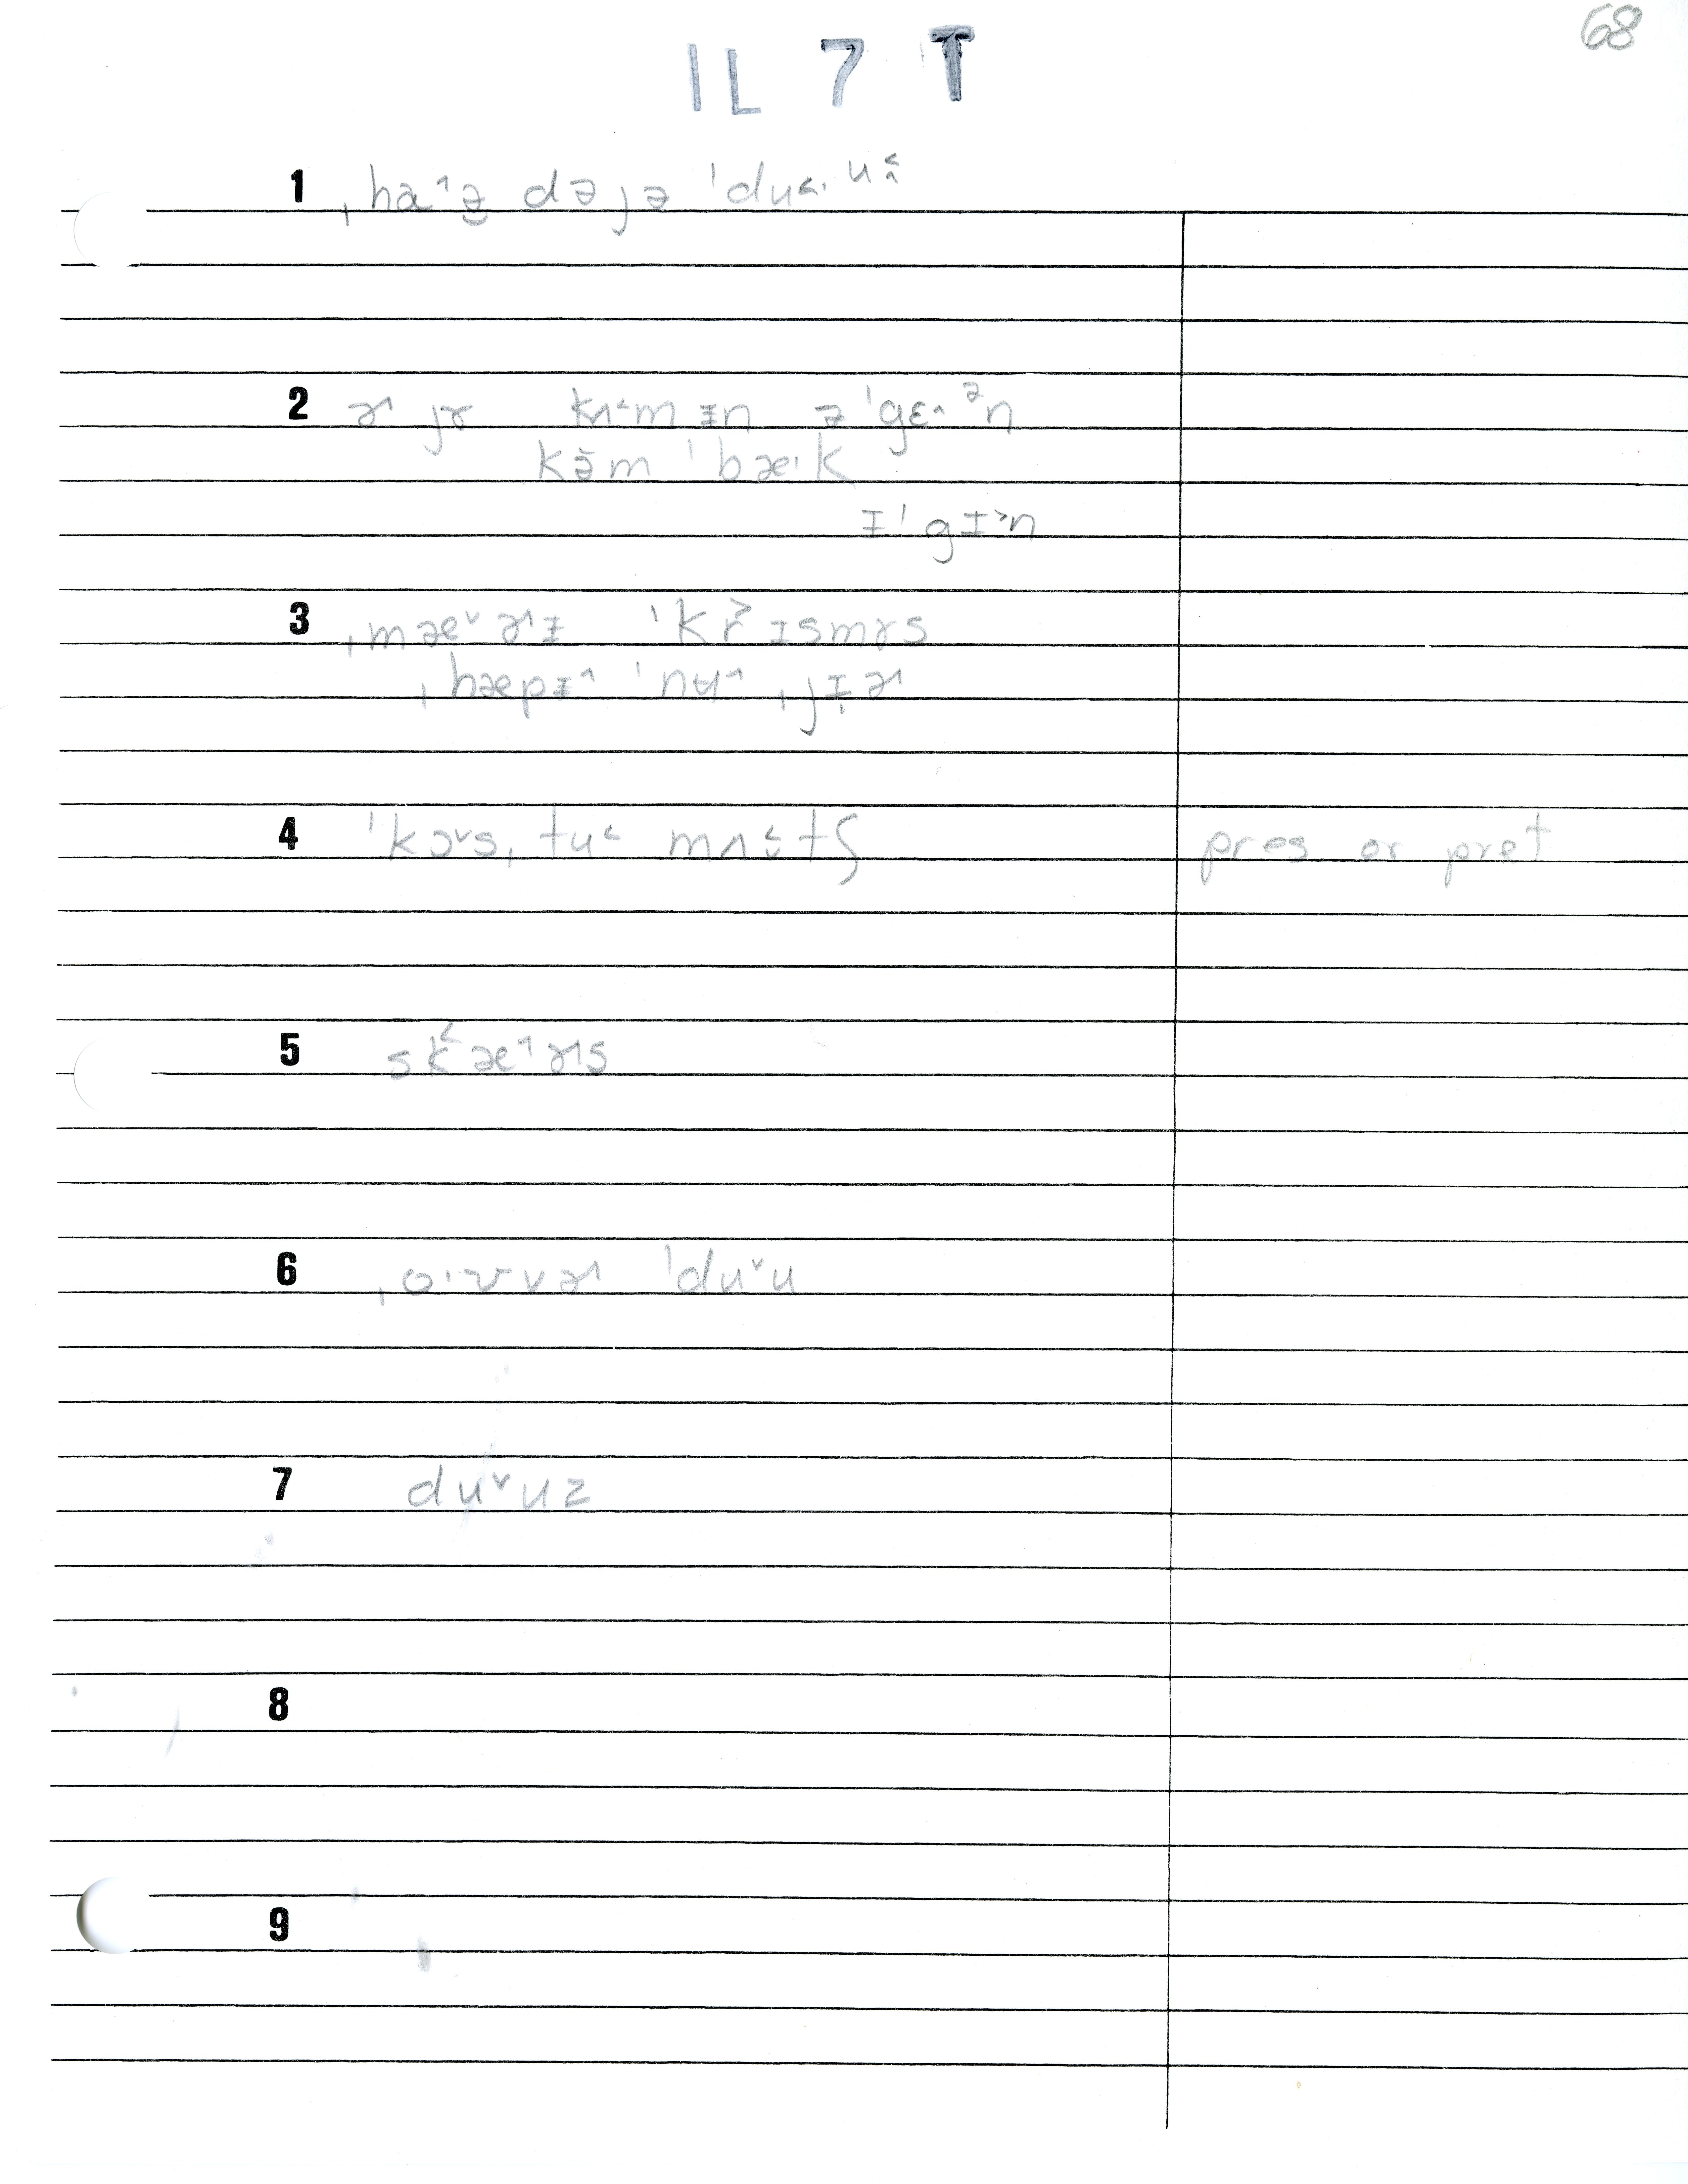 68
IL 7 T
1 ˌha˄z̜ dəjə ˈduˑ˂ u˂̭
2 ɚ jɤ kʌ˂m ɪn ə ˈgɛ˄ᵊn
kə̆m ˈbæˑk
ɪˈgɪ˃n
3 ˌmæ˅ɚɪ ˈkř˃ɪsmɤs
ˌhæpɪ˄ ˈnʉ˄ ˌjɪ̞ɚ
4 ˈkɔ˅sˌ tu˂ mʌ˂tʃ pres or pret
5 sk˂æ˄ɚs
6 ˌoˑʊvɚ ˈdu˅u
7 du˅uz
8
9